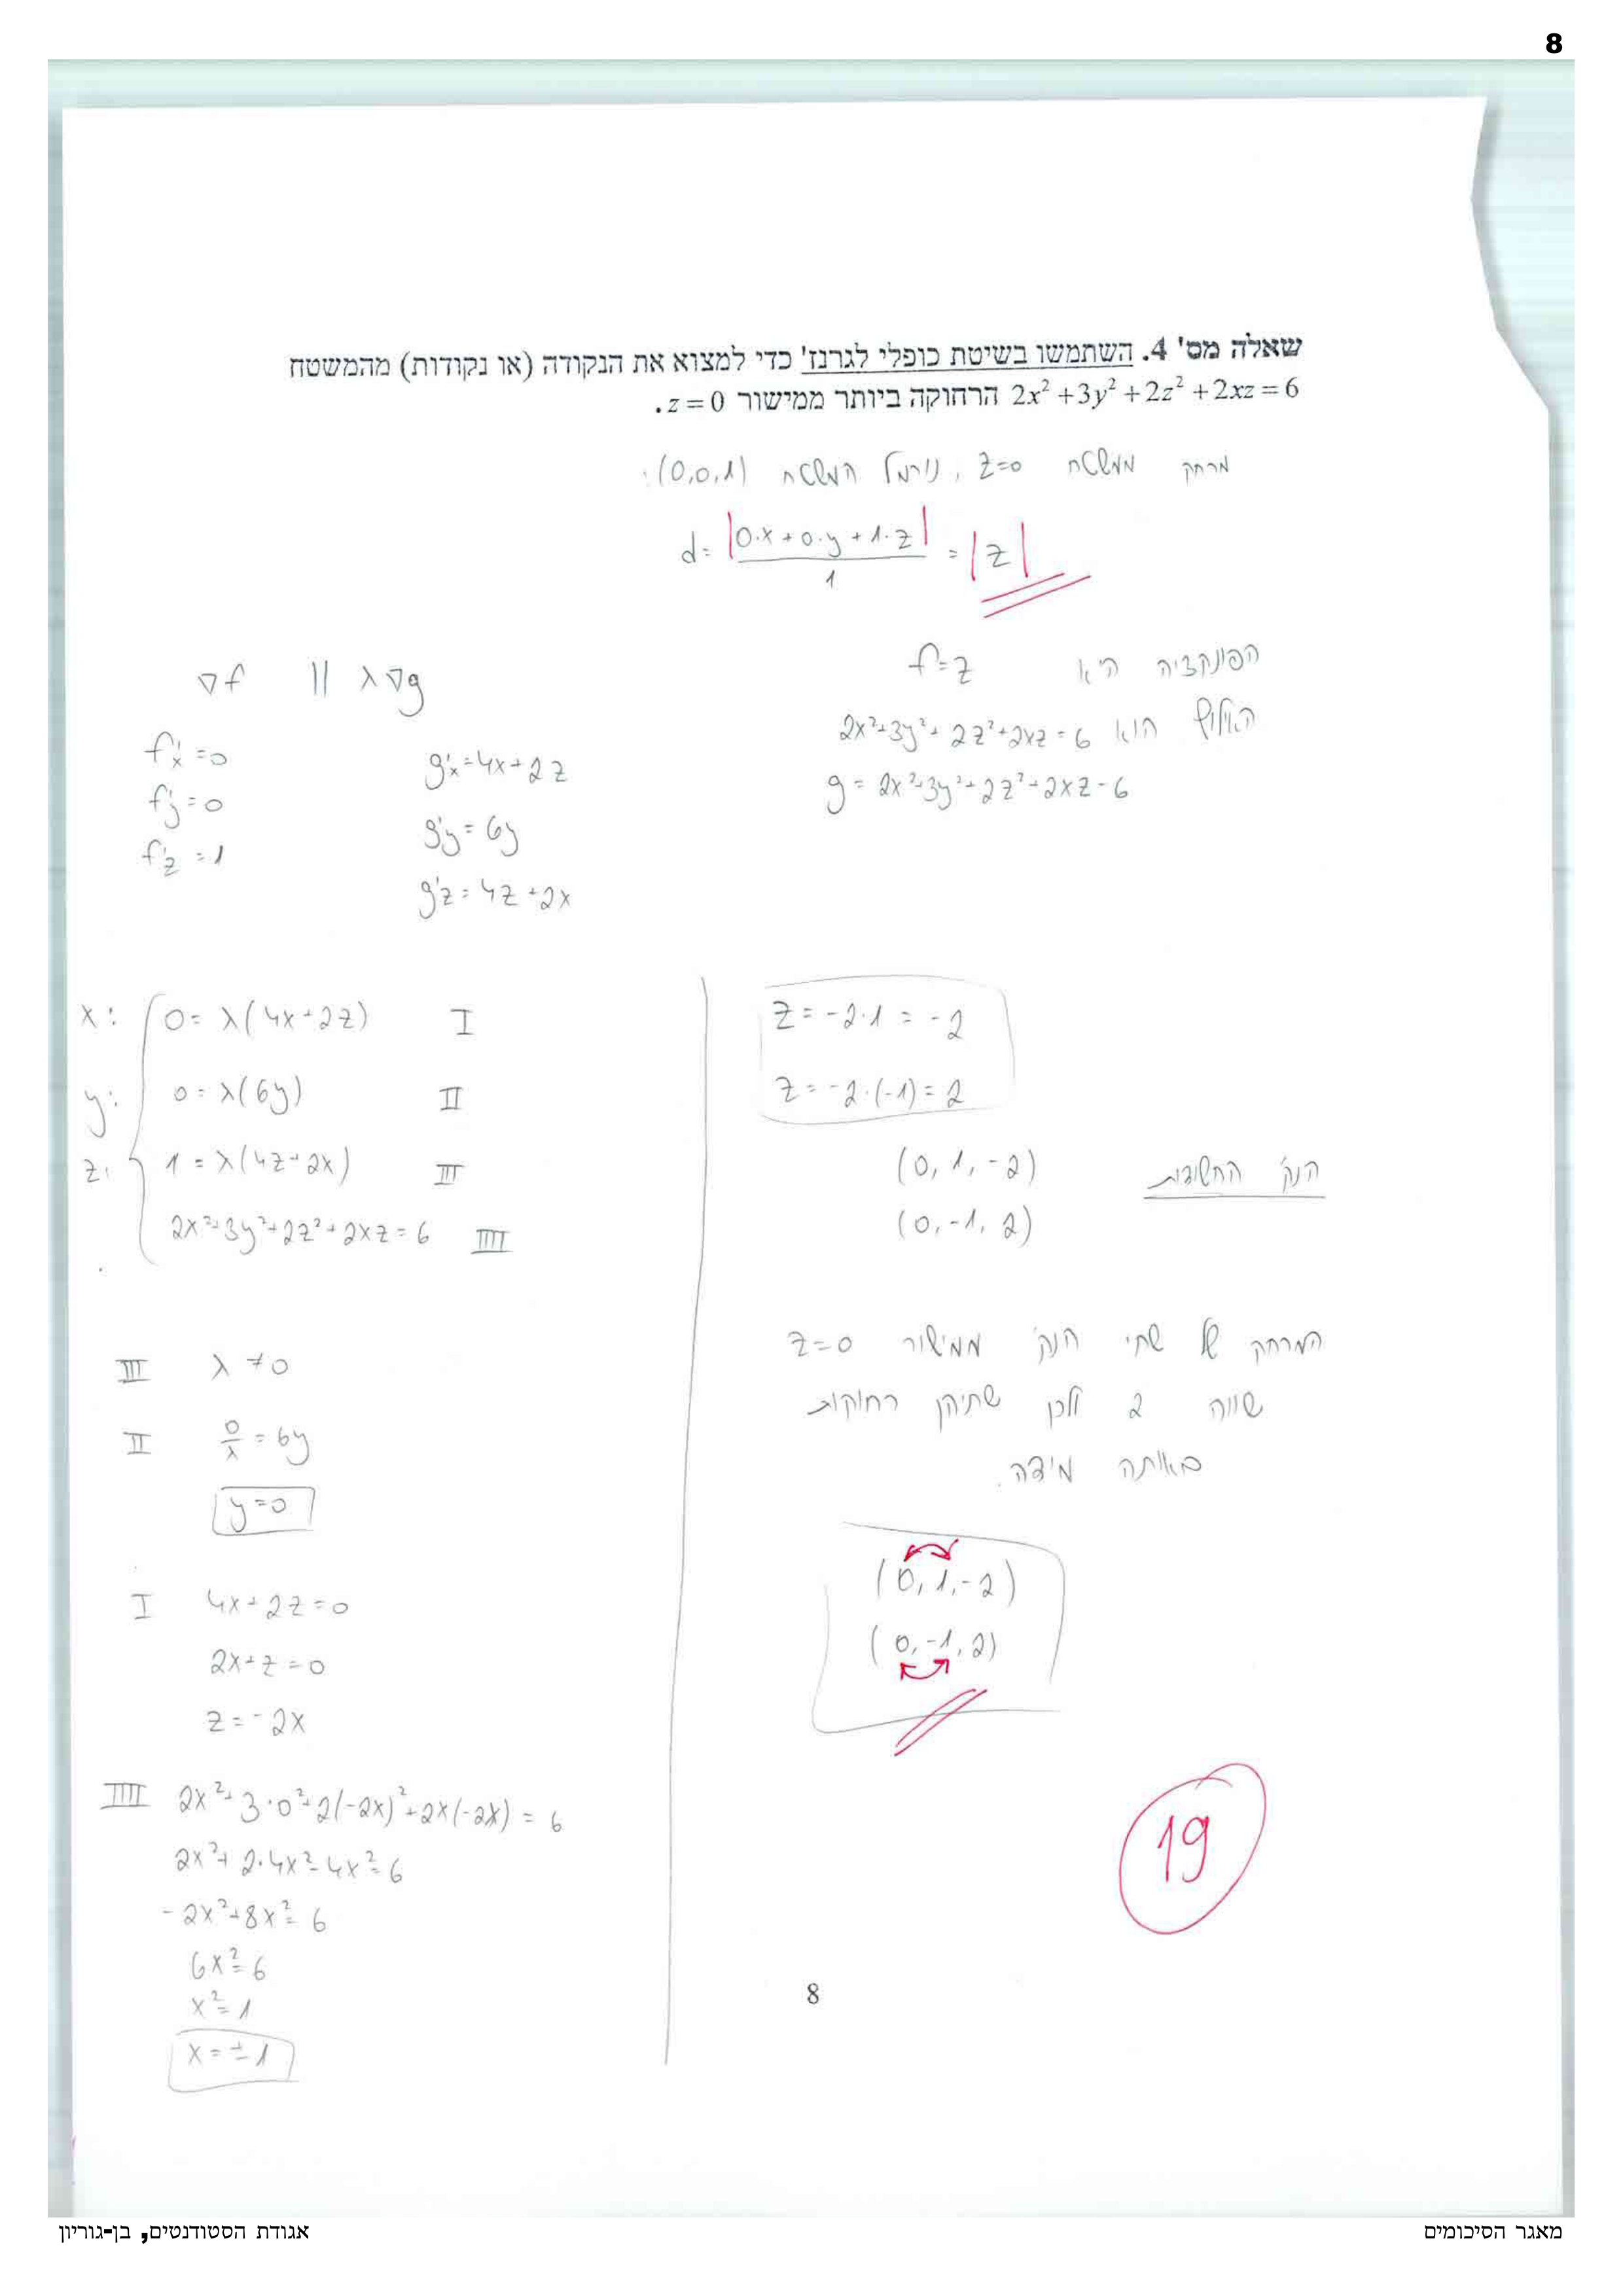 8
שאלה מס' 4. השתמשו בשיטת כופלי לגרנז' כדי למצוא את הנקודה (או נקודות) מהמשטח
2x² + 3y² + 2z² + 2xz = 6 הרחוקה ביותר ממישור z = 0.
מרחק ממשטח z=0, נורמל המשטח (0,0,1):
d = |0·x + 0·y + 1·z| / 1 = |z|
הפונקציה היא f = z
האילוץ הוא 2x²+3y²+2z²+2xz = 6
g = 2x²+3y²+2z²+2xz-6
∇f || λ∇g
f'x = 0 g'x = 4x+2z
f'y = 0 g'y = 6y
f'z = 1 g'z = 4z+2x
x: 0 = λ(4x+2z) I
y: 0 = λ(6y) II
z: 1 = λ(4z+2x) III
2x²+3y²+2z²+2xz = 6 IIII
III λ ≠ 0
II 0/λ = 6y
y=0
I 4x+2z=0
2x+z=0
z=-2x
IIII 2x²+3·0²+2(-2x)²+2x(-2x) = 6
2x²+2·4x²-4x²=6
-2x²+8x²=6
6x²=6
x²=1
x=±1
z = -2·1 = -2
z = -2·(-1) = 2
הנק' החשודות (0, 1, -2)
(0, -1, 2)
המרחק של שתי הנק' ממישור z=0
שווה 2 ולכן שתיהן רחוקות
באותה מידה.
(0, 1, -2)
(0, -1, 2)
19
8
מאגר הסיכומים
אגודת הסטודנטים, בן-גוריון